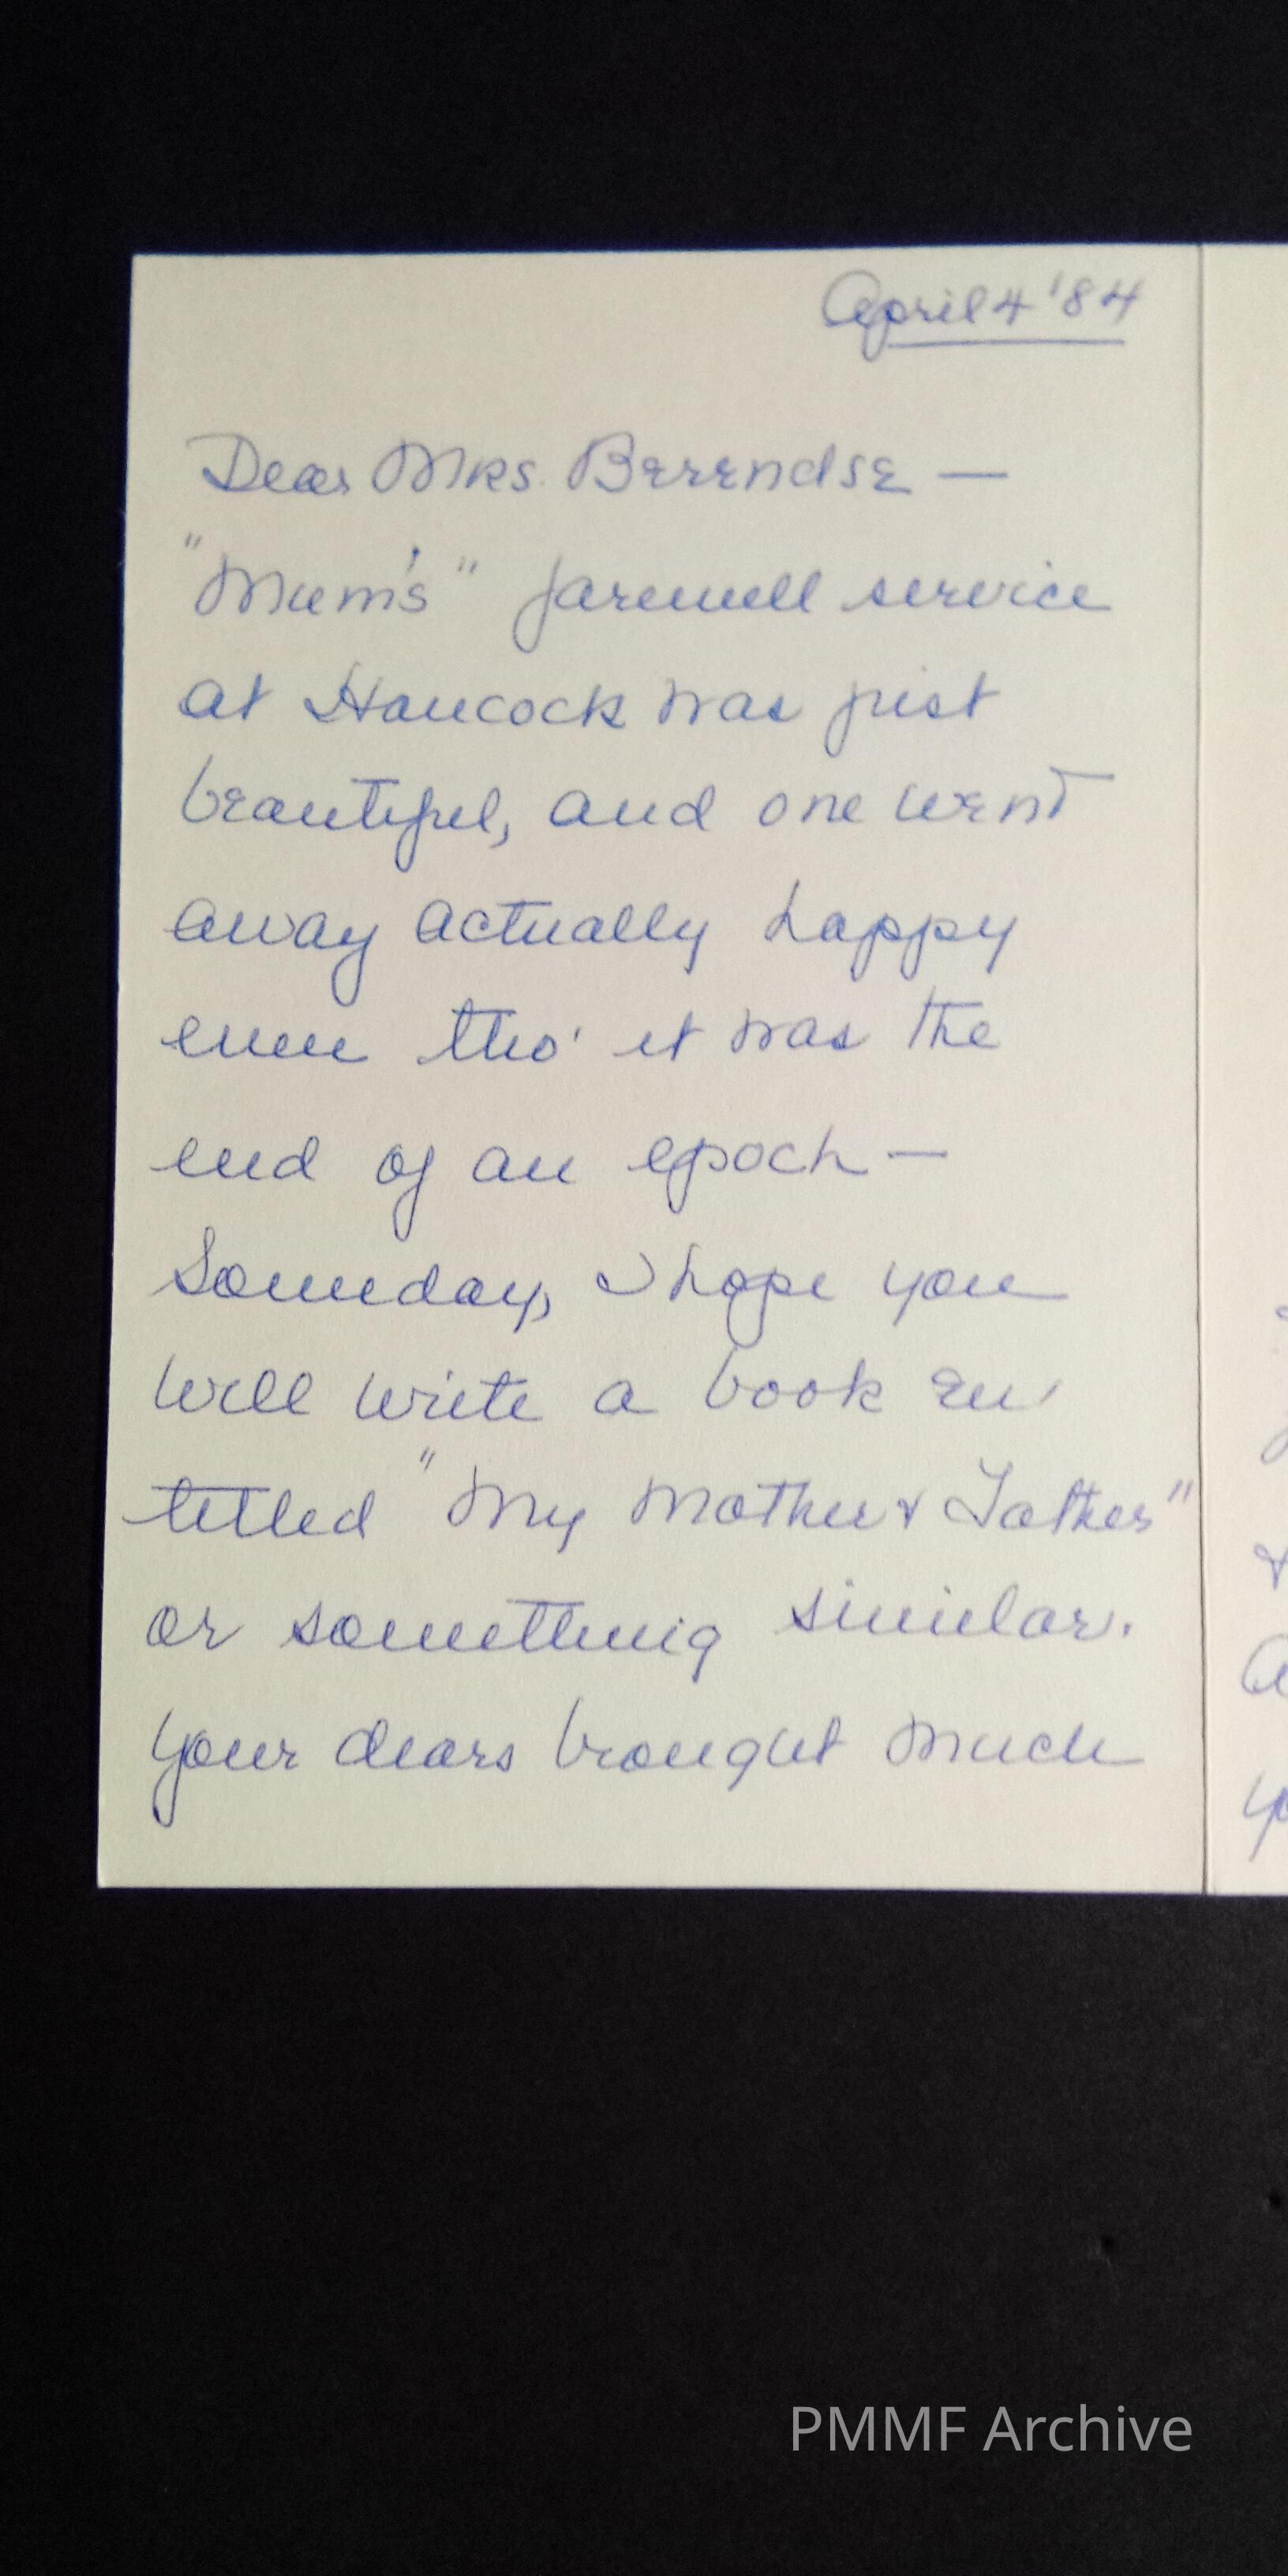 April 4 '84
Dear Mrs. Berendse —
"Mum's" farewell service
at Hancock was just
beautiful, and one went
away actually happy
even tho' it was the
end of an epoch —
Someday, I hope you
will write a book en
titled "My Mother & Father"
or something similar.
Your dears brought much
PMMF Archive